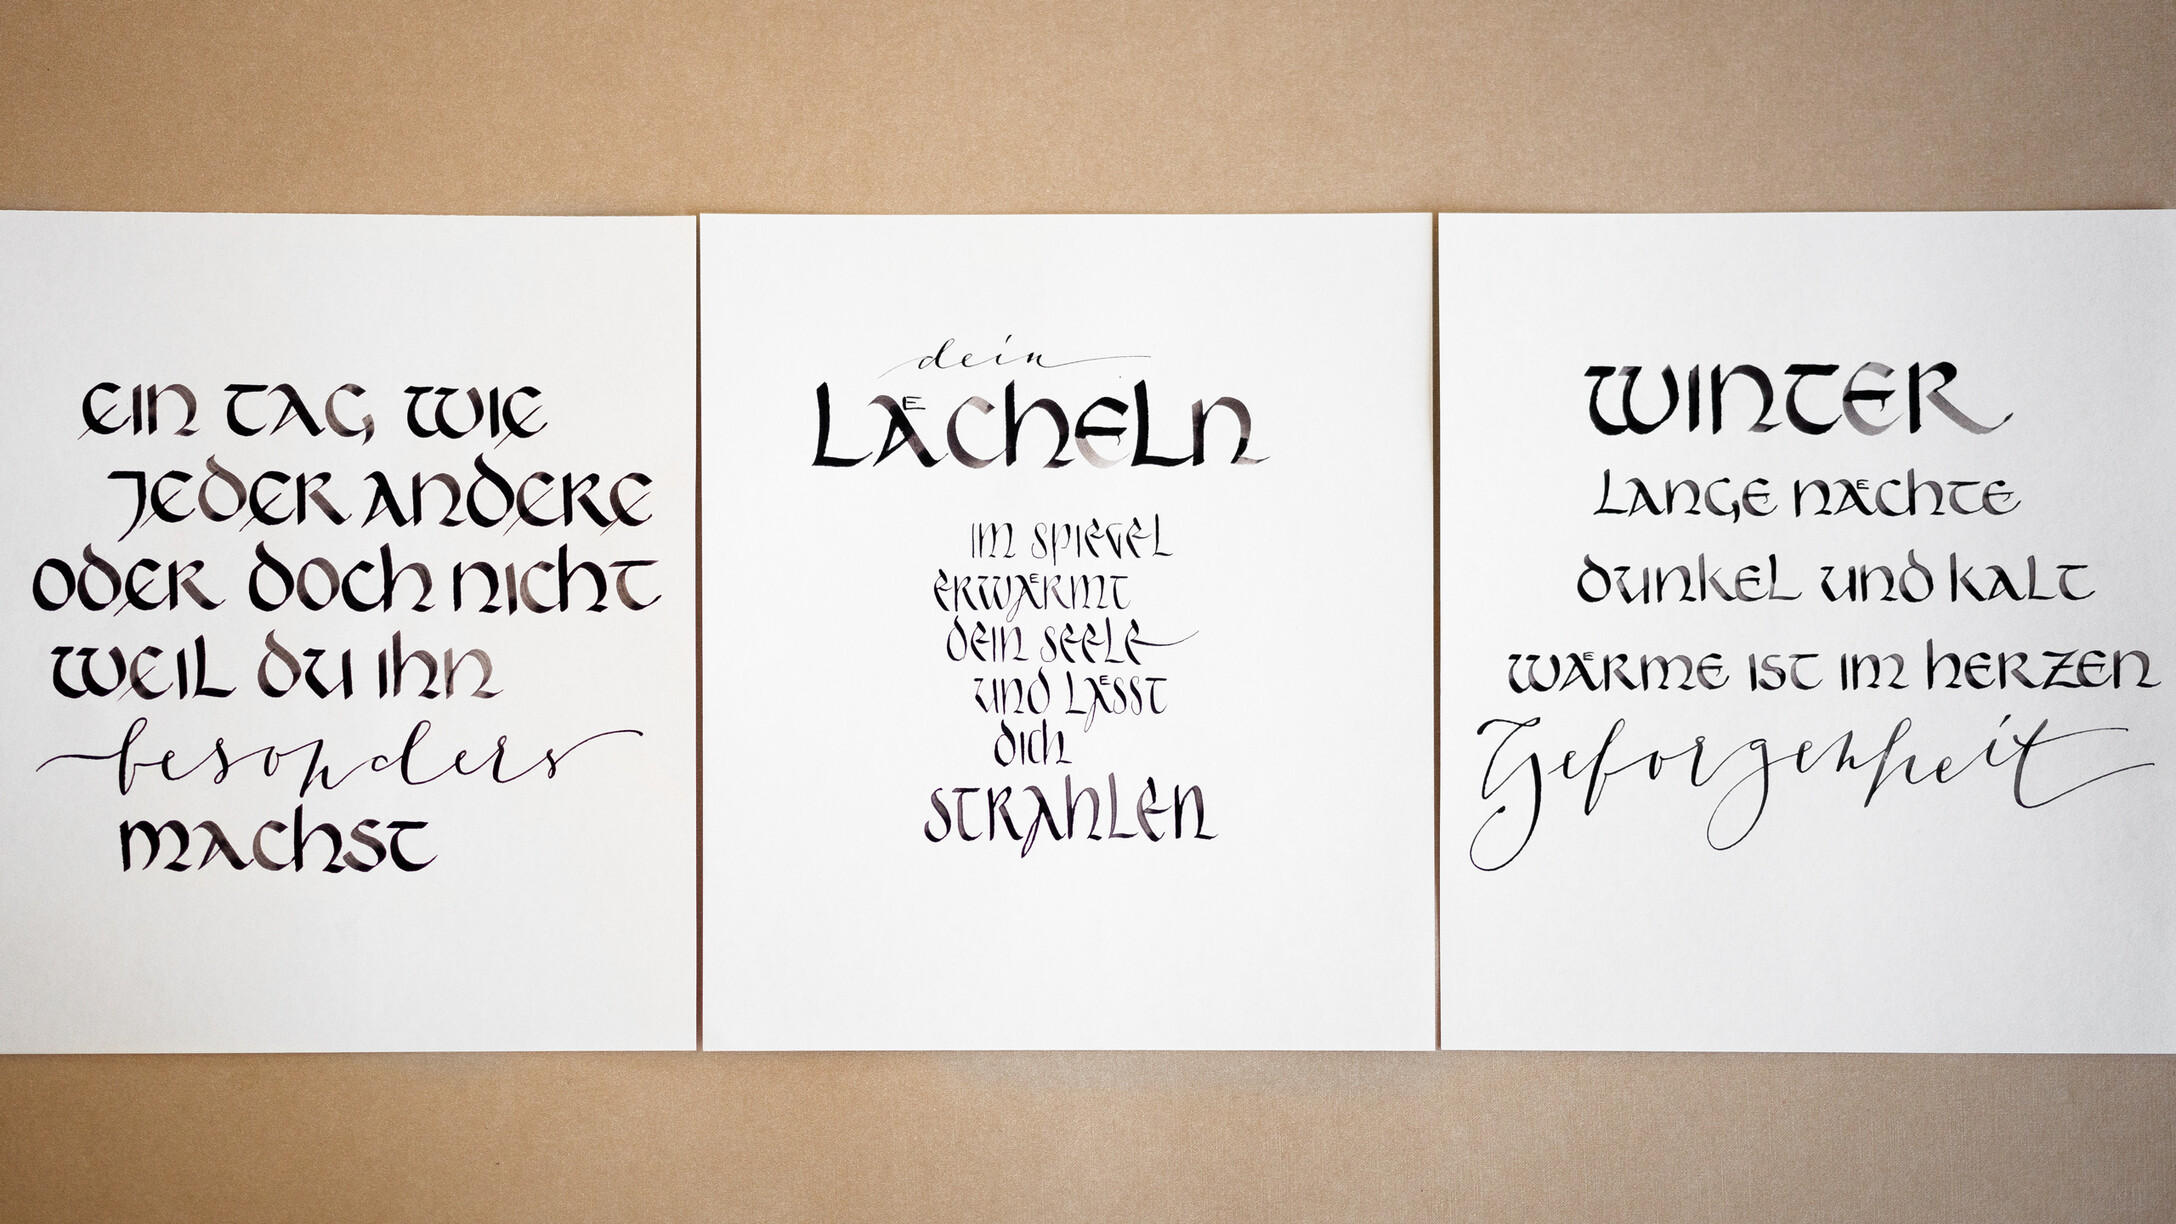 EIN TAG WIE
JEDER ANDERE
ODER DOCH NICHT
WEIL DU IHN
besonders
MACHST
dein
LÄCHELN
IM SPIEGEL
ERWÄRMT
DEIN SEELE
UND LÄSST
DICH
STRAHLEN
WINTER
LANGE NÄCHTE
DUNKEL UND KALT
WÄRME IST IM HERZEN
Geborgenheit